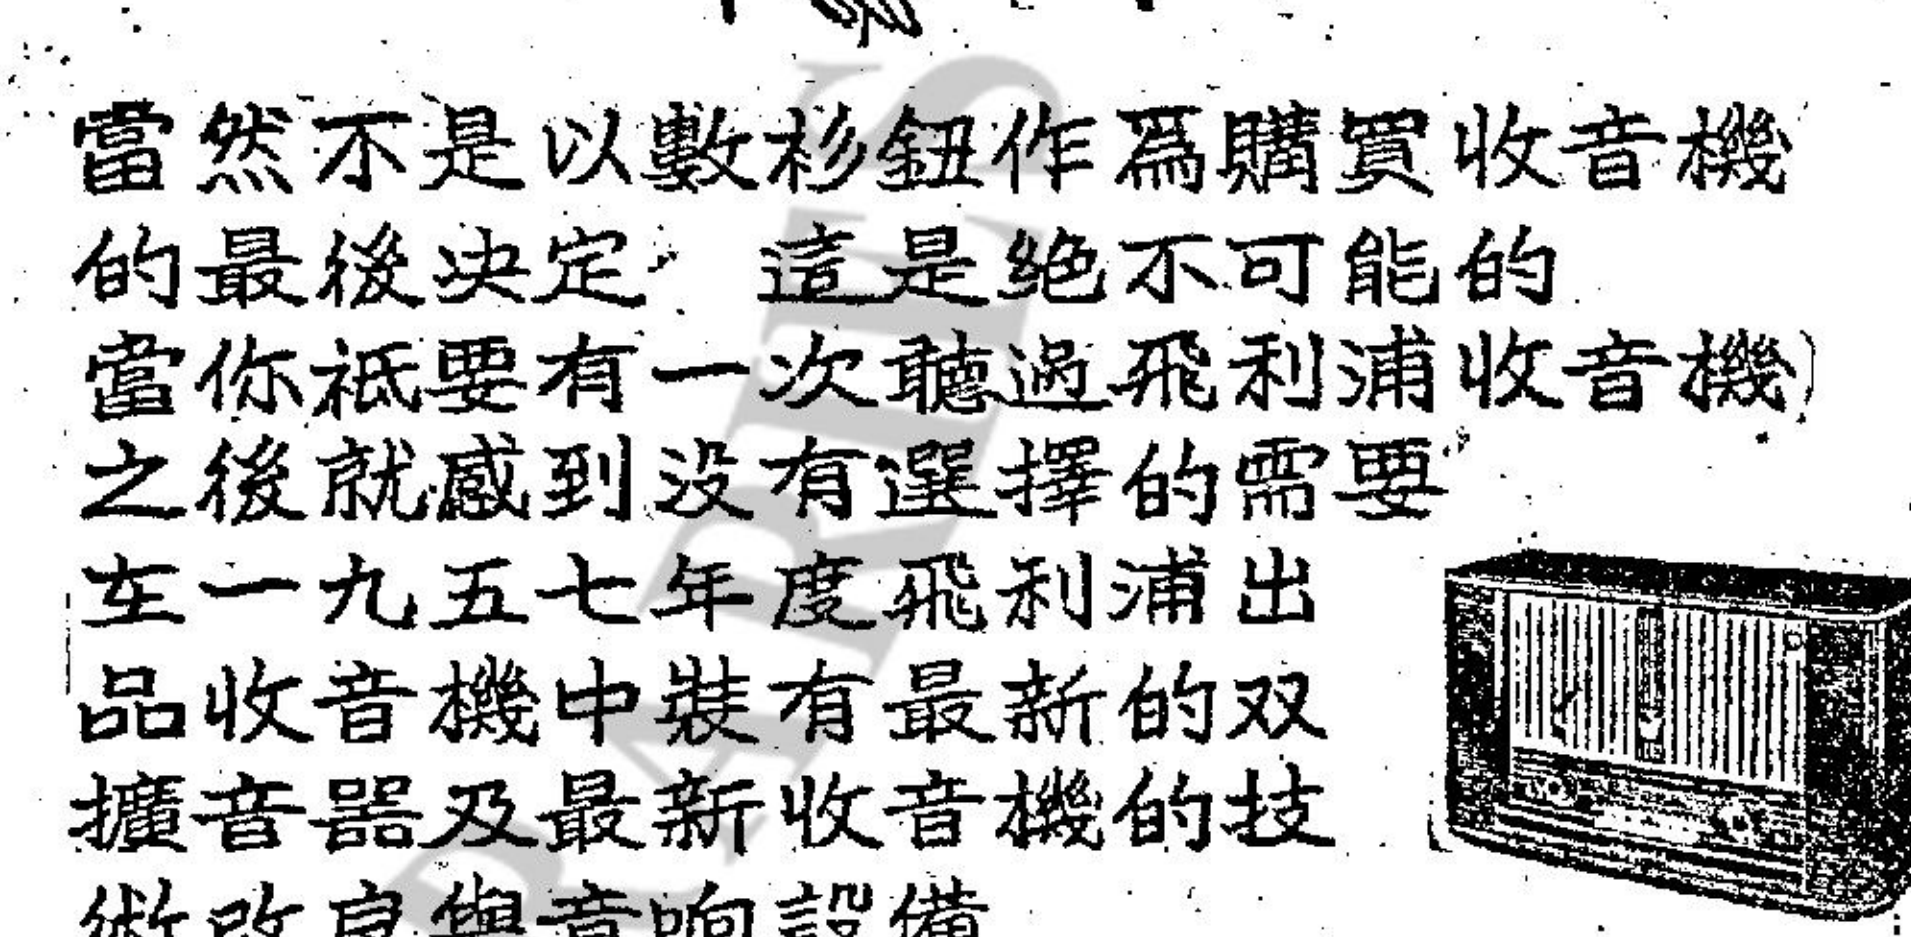 當然不是以數杉鈕作爲購買收音機
的最後决定，這是絶不可能的
當你祗要有一次聽過飛利浦收音機)
之後就感到没有選擇的需要
在一九五七年度飛利浦出
品收音機中裝有最新的双
擴音器及最新收音機的技
術改良與音响設備